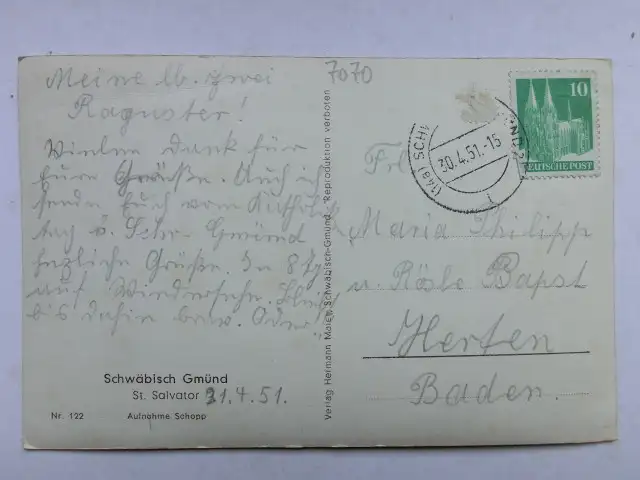 Meine lb. zwei
Raguster!
Vielen Dank für
Eure Grüße. Auch ich
sende Euch vom Kathol.
tag b. Schw. Gmünd
herzliche Grüße. In 8 Tg.
auf Wiedersehn. Bleibt
bis dahin brav. Oder!
Schwäbisch Gmünd
St. Salvator 31.4.51.
Nr. 122 Aufnahme Schopp
Verlag Hermann Maier, Schwäbisch-Gmünd. Reproduktion verboten
7070
10
DEUTSCHE POST
(14a) SCH
30.4.51.-15
Frl.
Maria Philipp
u. Rösle Bapst
Herten
Baden.